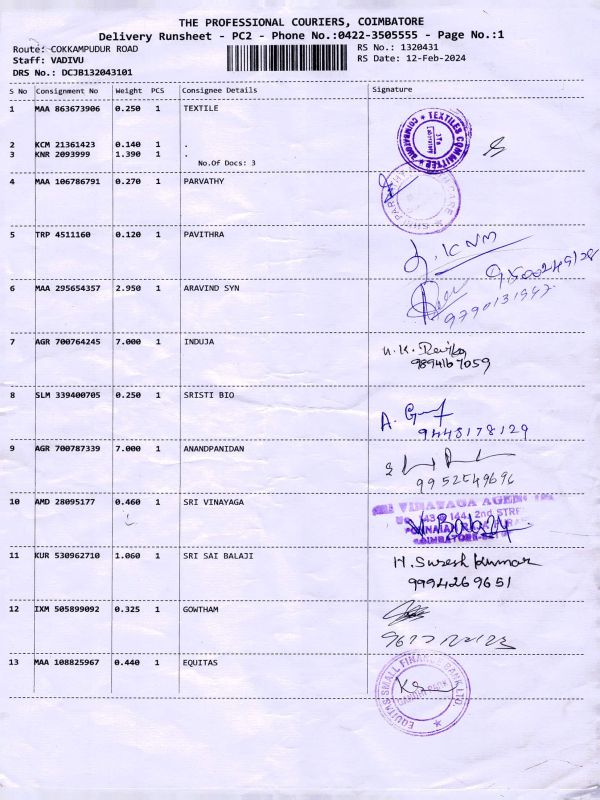 THE PROFESSIONAL COURIERS, COIMBATORE
Delivery Runsheet - PC2 - Phone No.:0422-3505555 - Page No.:1
Route: COKKAMPUDUR ROAD
RS No.: 1320431
Staff: VADIVU
RS Date: 12-Feb-2024
DRS No.: DCJB132043101
S No Consignment No Weight PCS Consignee Details Signature
1 MAA 863673906 0.250 1 TEXTILE
TEXTILES COMMITTEE
COIMBATORE
2 KCM 21361423 0.140 1 .
3 KNR 2093999 1.390 1 .
No.Of Docs: 3
4 MAA 106786791 0.270 1 PARVATHY
5 TRP 4511160 0.120 1 PAVITHRA
6 MAA 295654357 2.950 1 ARAVIND SYN
7 AGR 700764245 7.000 1 INDUJA
9894167059
8 SLM 339400705 0.250 1 SRISTI BIO
9448178129
9 AGR 700787339 7.000 1 ANANDPANIDAN
9952549696
10 AMD 28095177 0.460 1 SRI VINAYAGA
SRI VINAYAGA
2nd STRE
11 KUR 530962710 1.060 1 SRI SAI BALAJI
H. Suresh Kumar
9994269651
12 IXM 505899092 0.325 1 GOWTHAM
13 MAA 108825967 0.440 1 EQUITAS
EQUITAS SMALL FINANCE BANK LTD.